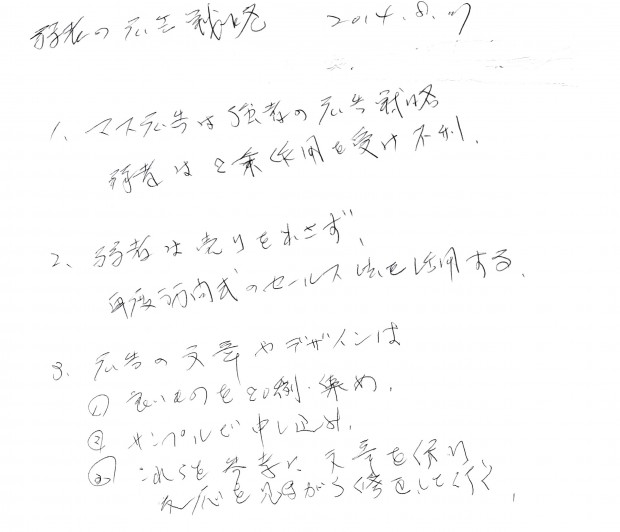 弱者の広告戦略 2014.8.27
1、マス広告は強者の広告戦略
弱者は2乗作用を受け不利.
2、弱者は売りをあさず、
再度訪問式のセールス法を活用する.
3. 広告の文章やデザインは
① 良いものを20例・集め.
② サンプルで申し込み.
③ これらを参考に文章を作り
反応を見ながら修正して行く.